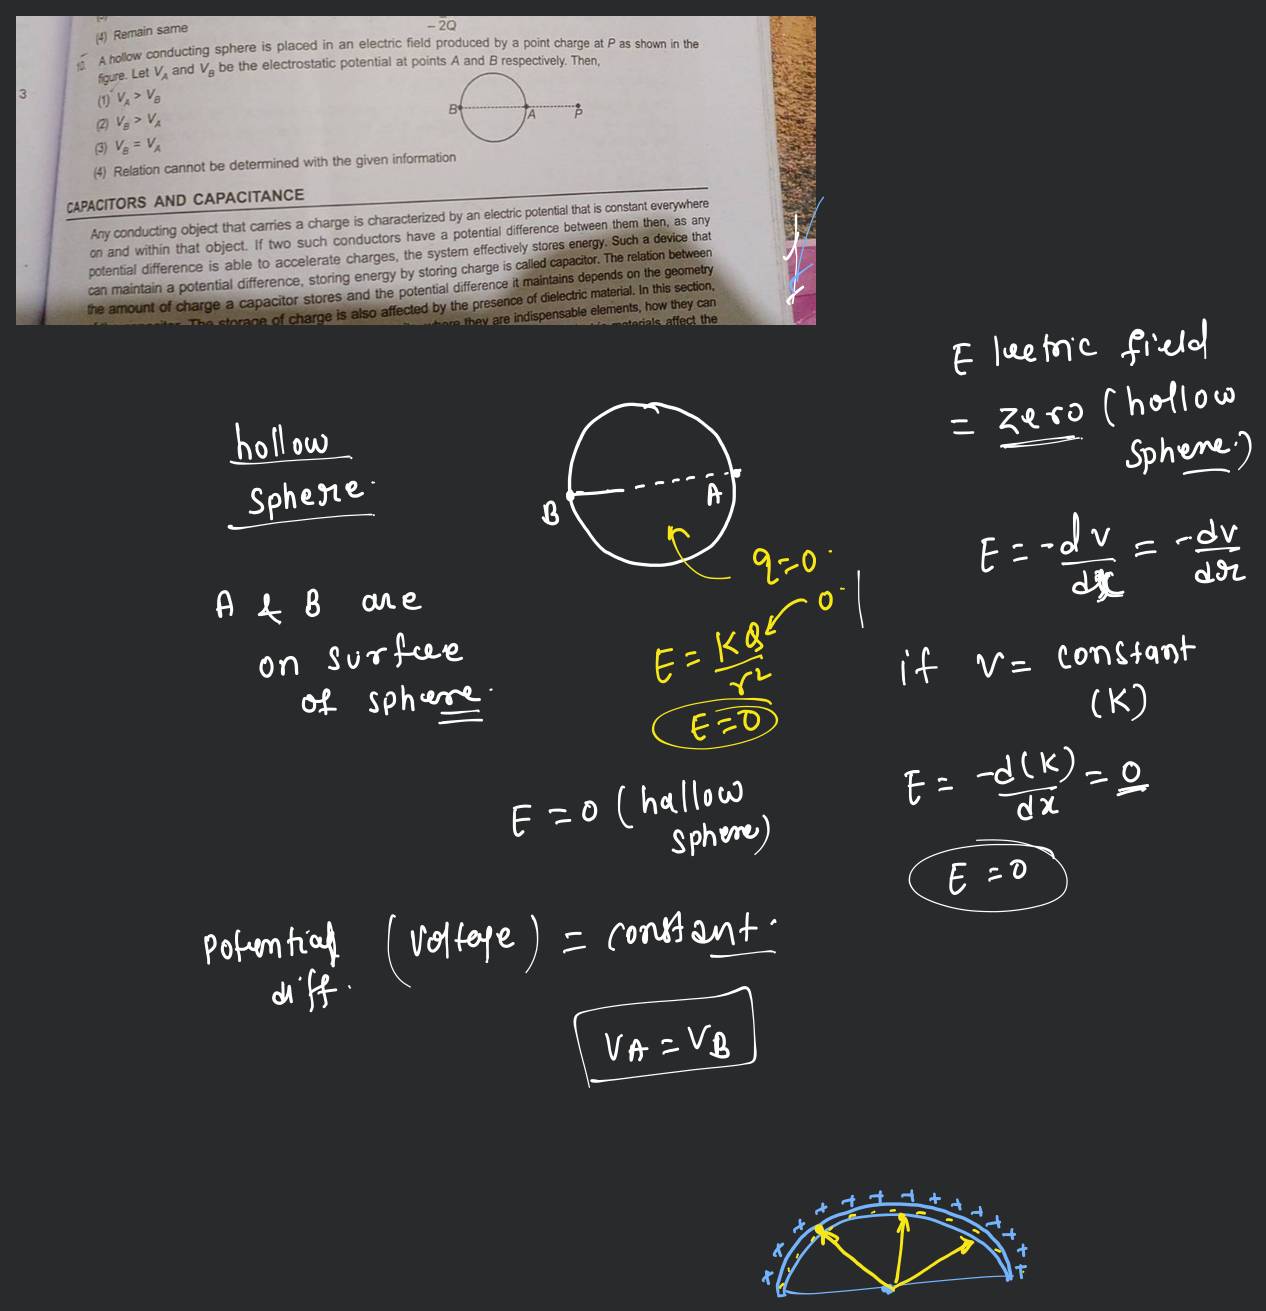 (4) Remain same
– 2Q
10. A hollow conducting sphere is placed in an electric field produced by a point charge at P as shown in the
figure. Let V_A and V_B be the electrostatic potential at points A and B respectively. Then,
3
(1) V_A > V_B
(2) V_B > V_A
(3) V_B = V_A
B A P
(4) Relation cannot be determined with the given information
CAPACITORS AND CAPACITANCE
Any conducting object that carries a charge is characterized by an electric potential that is constant everywhere
on and within that object. If two such conductors have a potential difference between them then, as any
potential difference is able to accelerate charges, the system effectively stores energy. Such a device that
can maintain a potential difference, storing energy by storing charge is called capacitor. The relation between
the amount of charge a capacitor stores and the potential difference it maintains depends on the geometry
The storage of charge is also affected by the presence of dielectric material. In this section,
where they are indispensable elements, how they can
materials affect the
Electric field
= zero (hollow
sphere.)
hollow
sphere.
B A
q=0.
0.
E = -dv/dx = -dv/dr
A & B are
on surface
of sphere.
E = KQ/r²
E=0
if v = constant
(K)
E = -d(K)/dx = 0
E = 0
E = 0 (hallow
sphere)
Potential (voltage) = constant.
diff.
VA = VB
+ + + + + + + + + + + + + +
- - - - - - - - - -